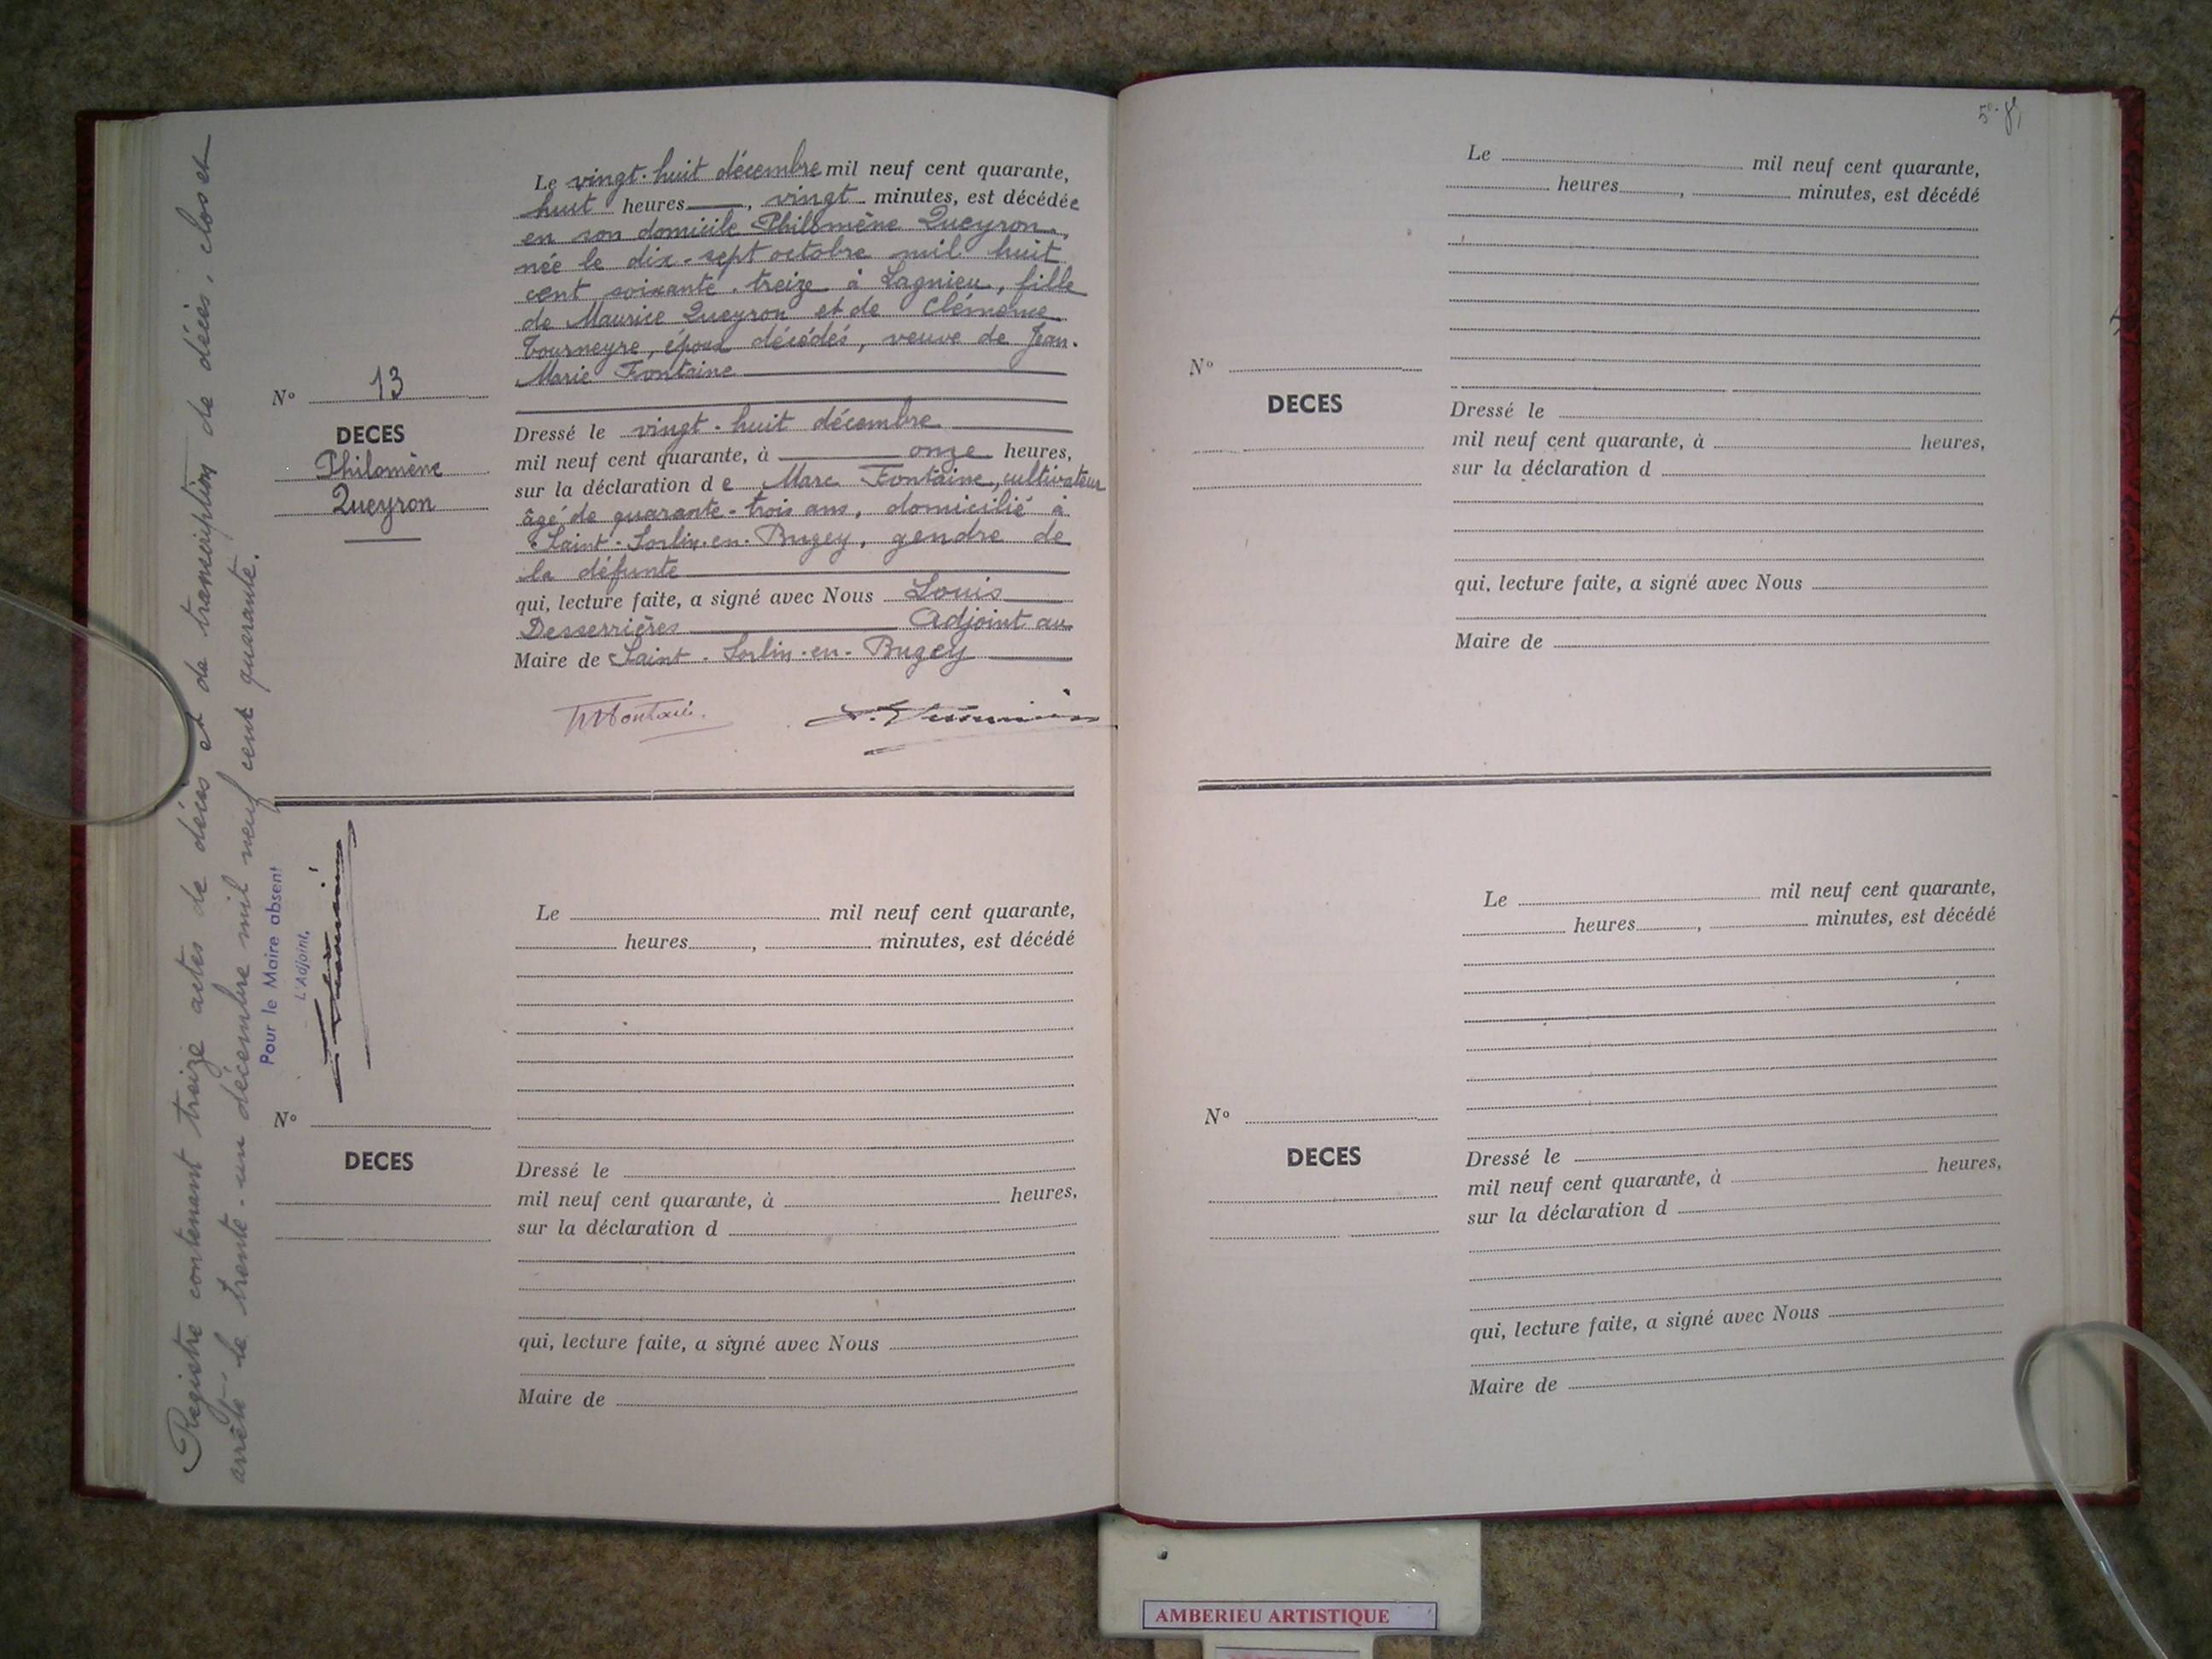 Le vingt-huit décembre mil neuf cent quarante,
huit heures, vingt minutes, est décédée
en son domicile Philomène Queyron,
née le dix-sept octobre mil huit
cent soixante-treize à Lagnieu, fille
de Maurice Queyron et de Clémence
Tourneyre, époux décédés, veuve de Jean-
Marie Fontaine
N° 13
DECES
Philomène
Queyron
Dressé le vingt-huit décembre
mil neuf cent quarante, à onze heures,
sur la déclaration de Marc Fontaine, cultivateur
âgé de quarante-trois ans, domicilié à
Saint-Sorlin-en-Bugey, gendre de
la défunte
qui, lecture faite, a signé avec Nous Louis
Desserrières Adjoint au
Maire de Saint-Sorlin-en-Bugey
Registre contenant treize actes de décès et de transcription de décès, clos et
arrêté le trente-un décembre mil neuf cent quarante.
Pour le Maire absent
L'Adjoint,
Le mil neuf cent quarante,
heures, minutes, est décédé
N°
DECES
Dressé le
mil neuf cent quarante, à heures,
sur la déclaration d
qui, lecture faite, a signé avec Nous
Maire de
Le mil neuf cent quarante,
heures, minutes, est décédé
N°
DECES
Dressé le
mil neuf cent quarante, à heures,
sur la déclaration d
qui, lecture faite, a signé avec Nous
Maire de
Le mil neuf cent quarante,
heures, minutes, est décédé
N°
DECES
Dressé le
mil neuf cent quarante, à heures,
sur la déclaration d
qui, lecture faite, a signé avec Nous
Maire de
AMBERIEU ARTISTIQUE